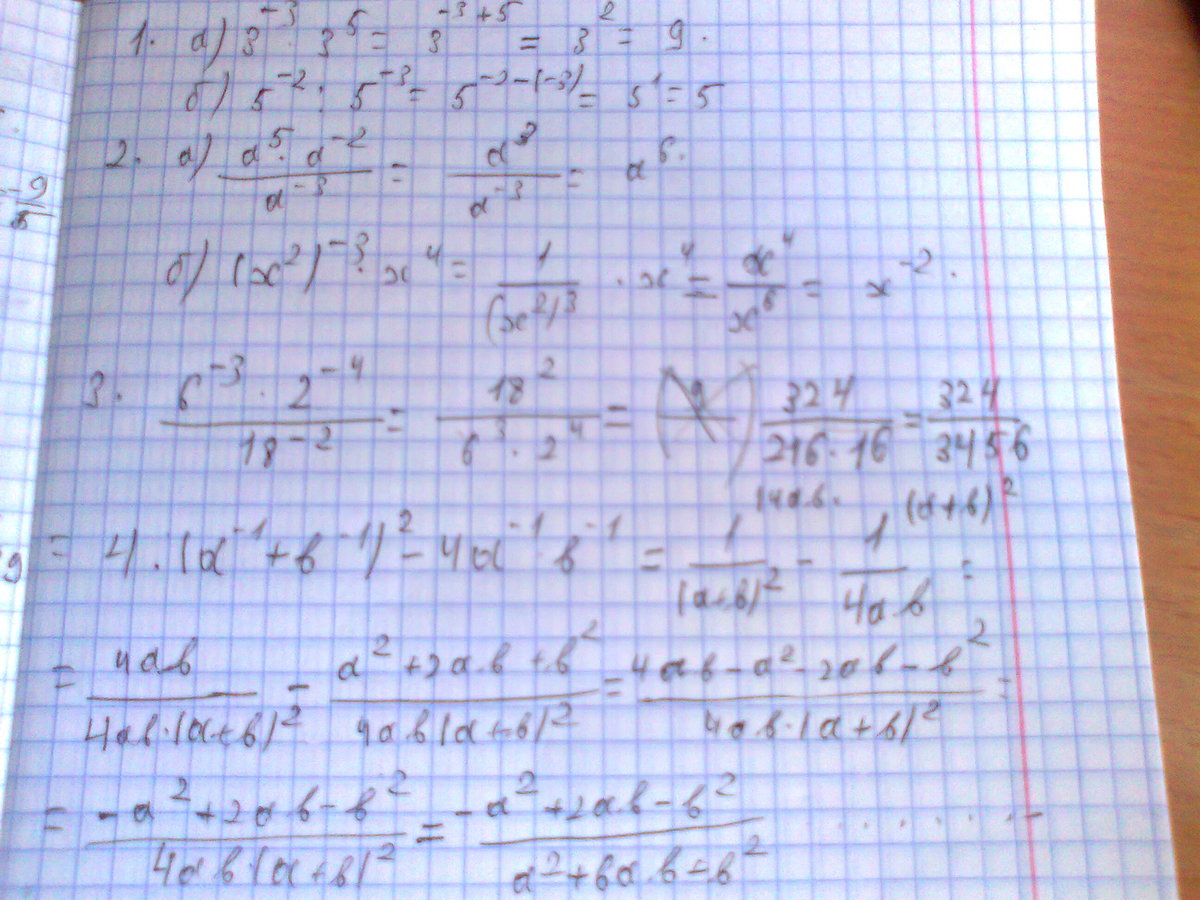 1. а) 3^-3 · 3^5 = 3^-3+5 = 3^2 = 9.
б) 5^-2 : 5^-3 = 5^-2-(-3) = 5^1 = 5
2. а) (a^5 · a^-2)/(a^-3) = (a^3)/(a^-3) = a^6.
-9/8
б) (x^2)^-3 · x^4 = 1/((x^2)^3 · x^4 = x^4/x^6 = x^-2.
3. (6^-3 · 2^-4)/(18^-2) = (18^2)/(6^3 · 2^4) = 324/(216 · 16) = 324/3456
(4ab. (a+b)^2
= 4. (a^-1 + b^-1)^2 - 4a^-1 b^-1 = 1/(a+b)^2 - 1/(4ab) =
9
= 4ab/(4ab·(a+b)^2) - (a^2+2ab+b^2)/(4ab(a+b)^2) = (4ab-a^2-2ab-b^2)/(4ab·(a+b)^2) =
= (-a^2+2ab-b^2)/(4ab(a+b)^2) = (-a^2+2ab-b^2)/(a^2+6ab+b^2) . . . . . . . -